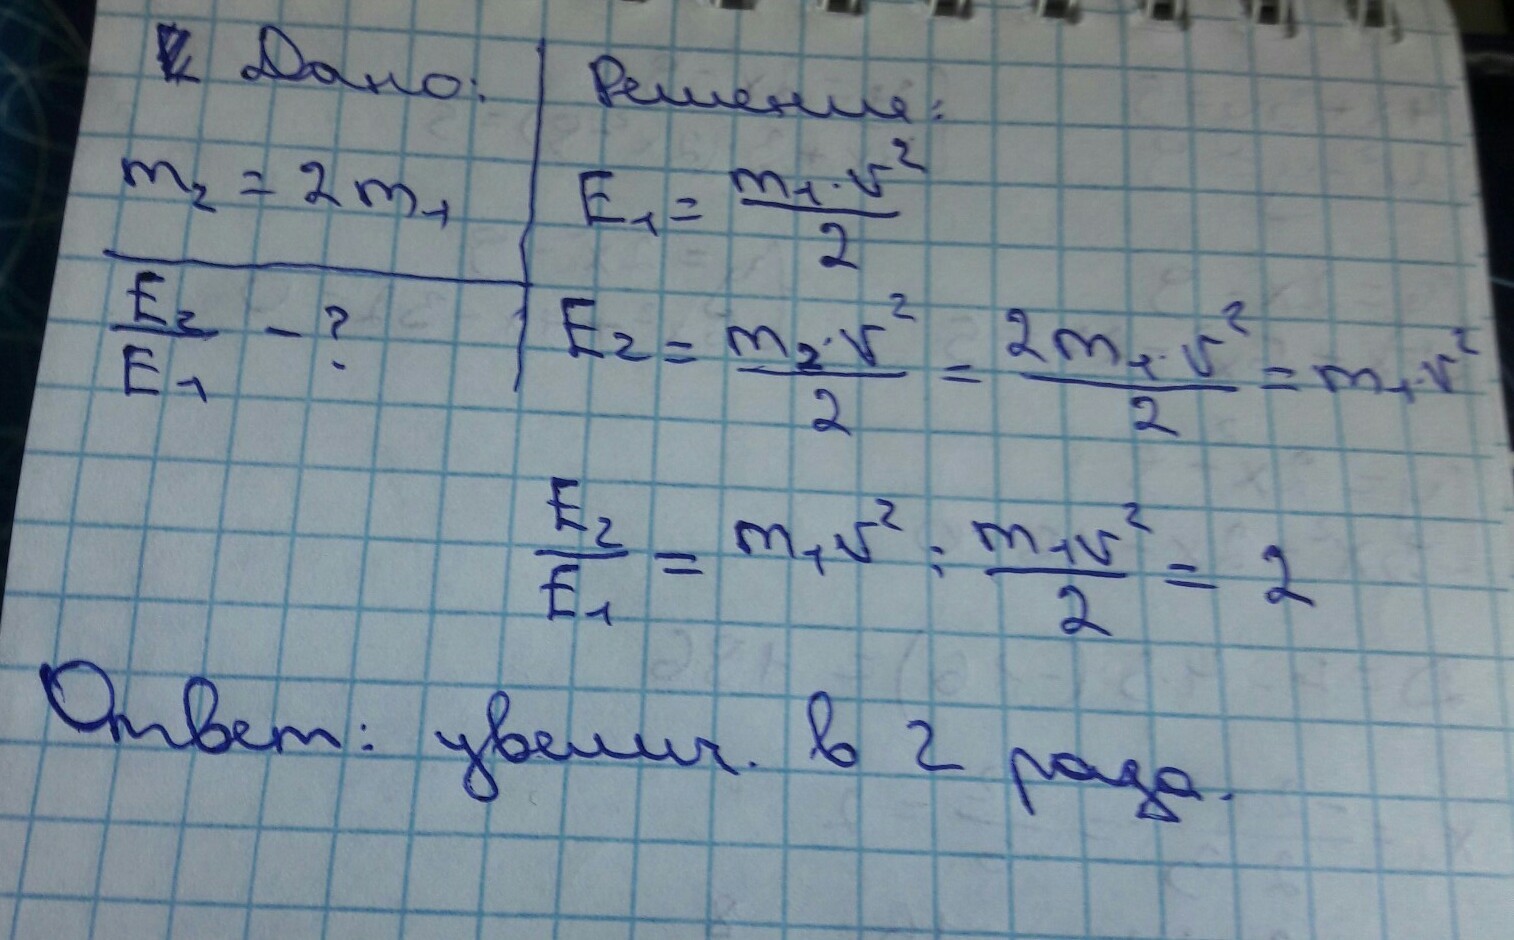 Дано:
m₂ = 2m₁
E₂/E₁ - ?
Решение:
E₁ = m₁·v²/2
E₂ = m₂·v²/2 = 2m₁·v²/2 = m₁·v²
E₂/E₁ = m₁v² : m₁v²/2 = 2
Ответ: увелич. в 2 раза.